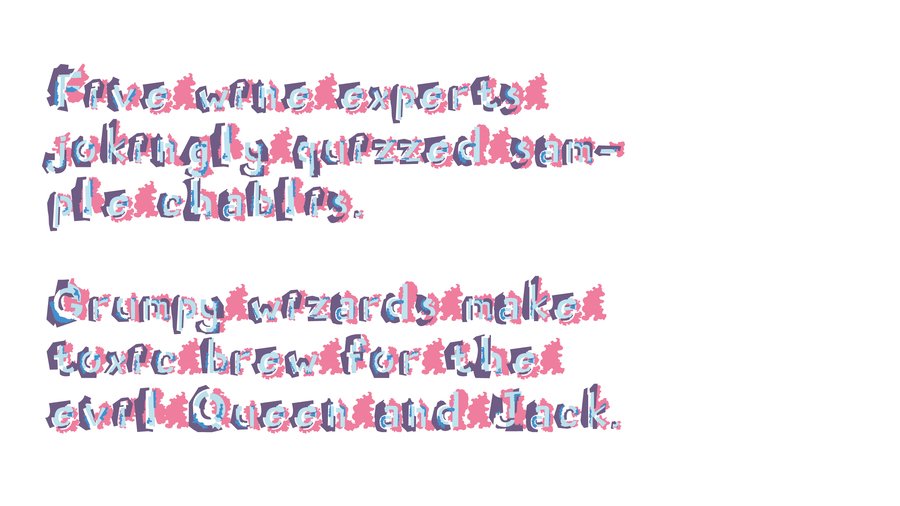 Five wine experts
jokingly quizzed sam-
ple chablis.
Grumpy wizards make
toxic brew for the
evil Queen and Jack.